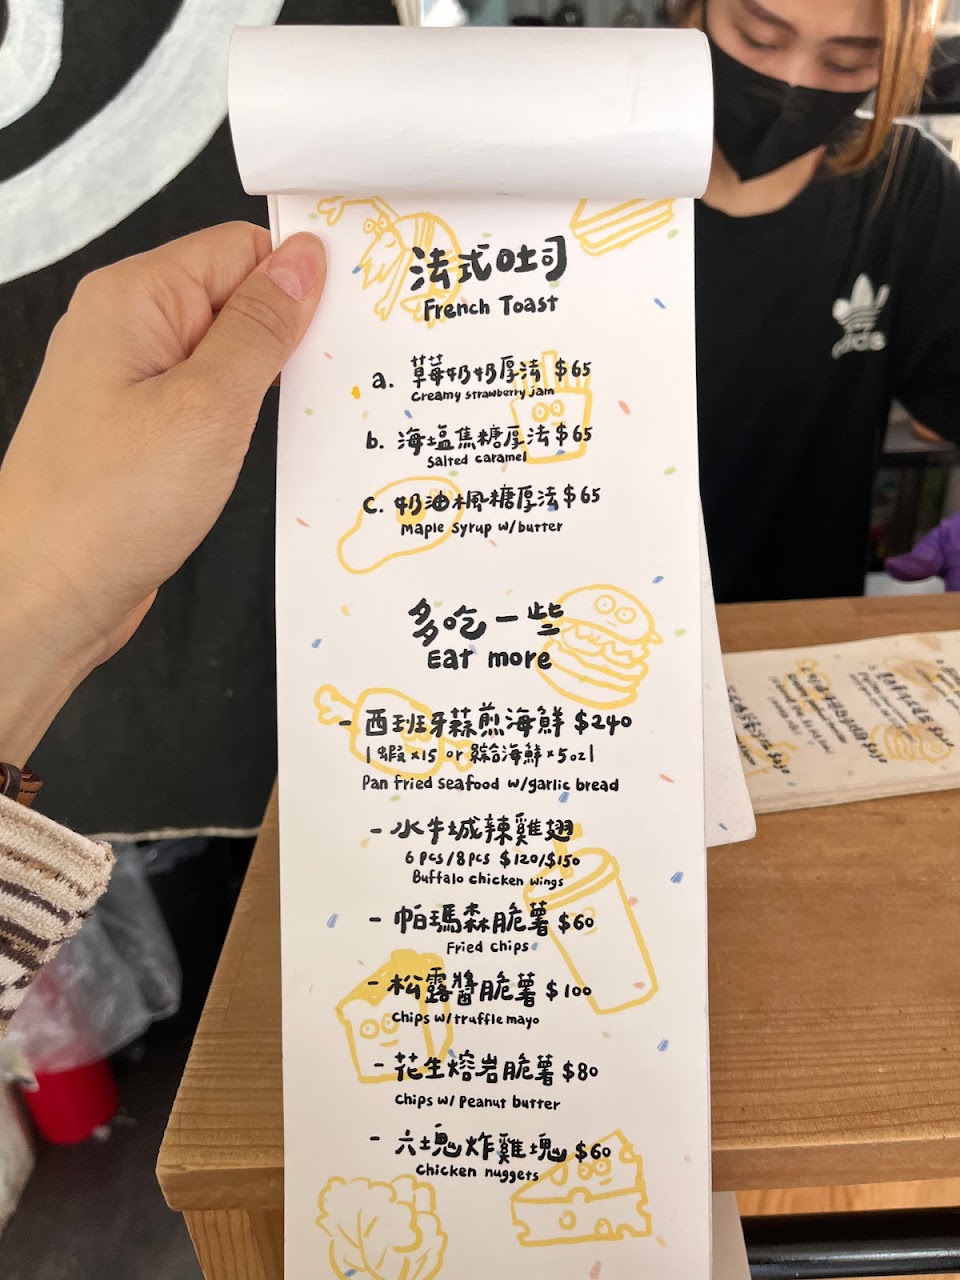 法式吐司
French Toast
a. 草莓奶奶厚法 $65
Creamy strawberry jam
b. 海塩焦糖厚法 $65
Salted caramel
c. 奶油楓糖厚法 $65
Maple syrup w/butter
多吃一些
Eat more
- 西班牙蒜煎海鮮 $240
| 蝦x15 or 綜合海鮮x5oz |
Pan fried seafood w/garlic bread
- 水牛城辣雞翅
6 pcs/8 pcs $120/$150
Buffalo chicken wings
- 帕瑪森脆薯 $60
Fried chips
- 松露醬脆薯 $100
Chips w/truffle mayo
- 花生熔岩脆薯 $80
Chips w/ Peanut butter
- 六塊炸雞塊 $60
Chicken nuggets